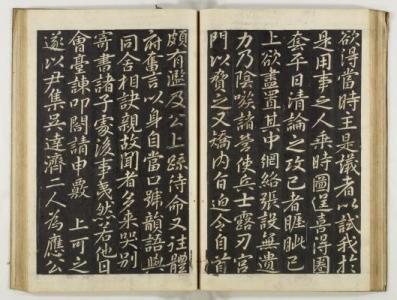 欲得當時主是議者以試我於
是用事之人乘時圖逞喜得圈
套平日清論之攻己者睚眦已
上欲盡置其中網絡張設無遺
力乃陰嗾諸營使兵士露刃宮
門以脅之又矯內旨迫令自首
頗有濫及公上疏待命又往體
府奮言以身自當口號韻語與
同舍相訣親故聞者多來哭別
寄書諸子家後事夷然若他日
會臺諫叩閤請申覈 上可之
遂以尹集吳達濟二人為應公